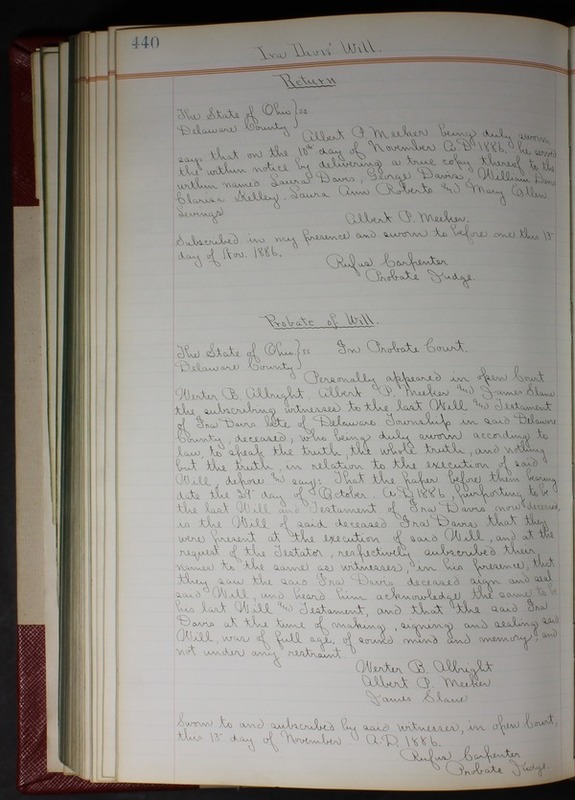 440
Ira Davis' Will.
Return
The State of Ohio } ss
Delaware County } Albert P. Meeker being duly sworn
says that on the 10th day of November A.D. 1886, he served
the within notice by delivering a true copy thereof to the
within named Laura Davis, George Davis, William Davis
Clarisa Kelley, Laura Ann Roberts & Mary Ellen
Albert P. Meeker.
Subscribed in my presence and sworn to before me this 13"
day of Nov. 1886.
Rufus Carpenter
Probate Judge.
Probate of Will.
The State of Ohio } ss In Probate Court.
Delaware County }
Personally appeared in open Court
Werter B. Albright, Albert P. Meeker & James Slane
the subscribing witnesses to the last Will & Testament
of Ira Davis late of Delaware Township in said Delaware
County, deceased, who being duly sworn according to
law, to speak the truth, the whole truth, and nothing
but the truth, in relation to the execution of said
Will, depose & say: That the paper before them bearing
date the 29" day of October A.D. 1886, purporting to be
the last Will and Testament of Ira Davis now deceased,
is the Will of said deceased Ira Davis that they
were present at the execution of said Will, and at the
request of the Testator, respectively subscribed their
names to the same as witnesses, in his presence, that
they saw the said Ira Davis deceased sign and seal
said Will, and heard him acknowledge the same to be
his last Will & Testament, and that the said Ira
Davis at the time of making, signing and sealing said
Will, was of full age, of sound mind and memory, and
not under any restraint
Werter B. Albright
Albert P. Meeker
James Slane
Sworn to and subscribed by said witnesses, in open Court,
this 13" day of November A.D. 1886.
Rufus Carpenter
Probate Judge.